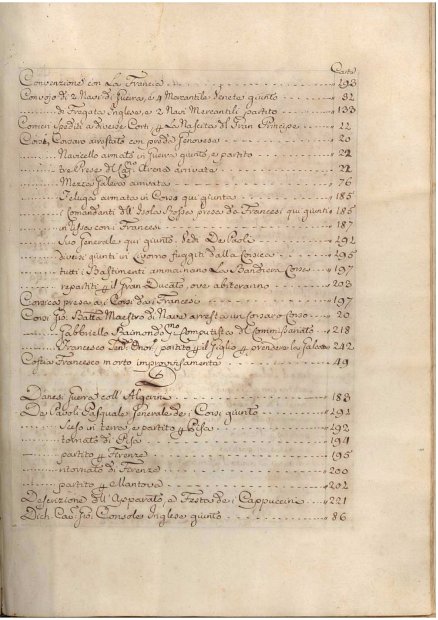 Carte
Convenzione con La Francia 193
Convojo di 2 Navi di Guerra, e 4 Mercantile Venete giunto 82
di Fregata Inglese, e 2 Navi Mercantili partito 133
Corrieri Spediti a diverse Corti p La Nascita del Gran Principe 22
Corsi, Corsaro arrestato con preda Genovese 20
Navicello armato in Guerra giunto, e partito 21
tre Prese di Arena arrivata 22
Mezza Galera arrivata 76
Feluga armata in Corso qui giunta 185
Comandanti dell' Isola Rossa presa da Francesi qui giunti 185
in Rissa con i Francesi 187
Suo Generale qui giunto. Vedi De Paoli 191
diversi giunti in Livorno fuggiti dalla Corsica 195
tutti i Bastimenti ammainano La Bandiera Corsa 197
repartiti p il Gran Ducato, ove abiteranno 203
Corsica presa ai Corsi da Francesi 197
Corsi Gio: Batta Maestro di Nave arrestà un Corsaro Corso 20
Gabbriello Raimondo Computista di Commissariato 218
Francesco Ten: Onor: partito p il Giglio p prendere la Galera 242
Costia Francesco morto improvvisamente 49
Danesi Guerra coll' Algerini 183
De Paoli Pasquale Generale de i Corsi giunto 191
Sceso in terra, e partito p Pisa 192
tornato di Pisa 194
partito p Firenze 195
ritornato di Firenze 200
partito p Mantova 202
Descrizione dell' Apparato, e Festa de i Cappuccini 221
Dich Cav: Gio: Console Inglese giunto 86